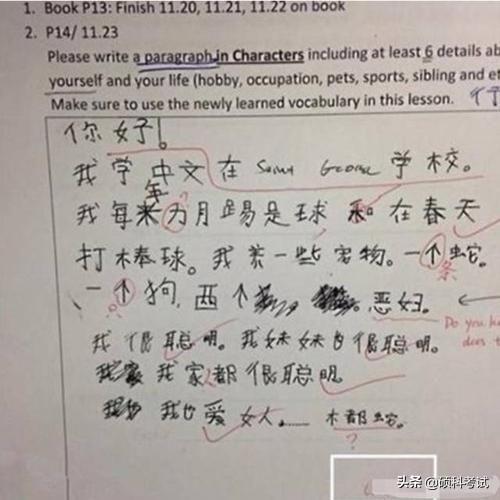 1. Book P13: Finish 11.20, 11.21, 11.22 on book
2. P14/ 11.23
Please write a paragraph in Characters including at least 6 details ab
yourself and your life (hobby, occupation, pets, sports, sibling and et
Make sure to use the newly learned vocabulary in this lesson.
你好!
我学中文在 Saint George 学校。
我每年 月踢是球 和 在春天
打棒球。我养一些宠物。一个蛇。
条
一个狗,两个 恶妇。
?
Do you k
does t
我很聪明。我妹妹也很聪明。
我家都很聪明。
我也爱女人......
?
头条 @硕科考试